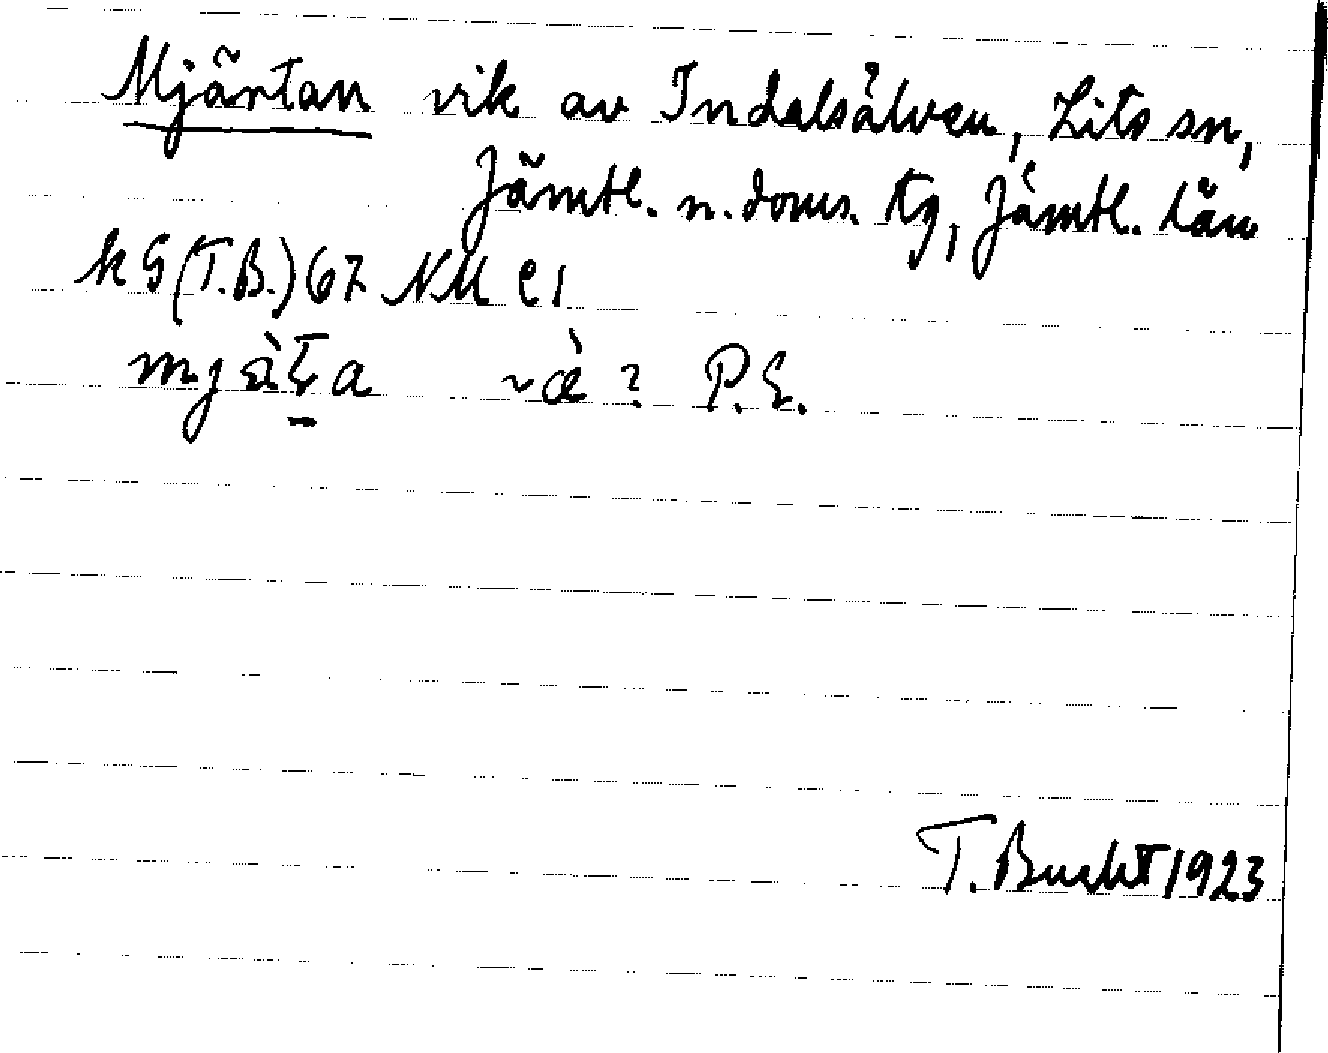 Mjärtan vik av Indalsälven, Lits sn,
Jämtl. n. doms. tg, Jämtl. län
k G (T.B.) 67 NM e1
mjæ̀ʈa ~œ̀? P.E.
T. Bucht 1923